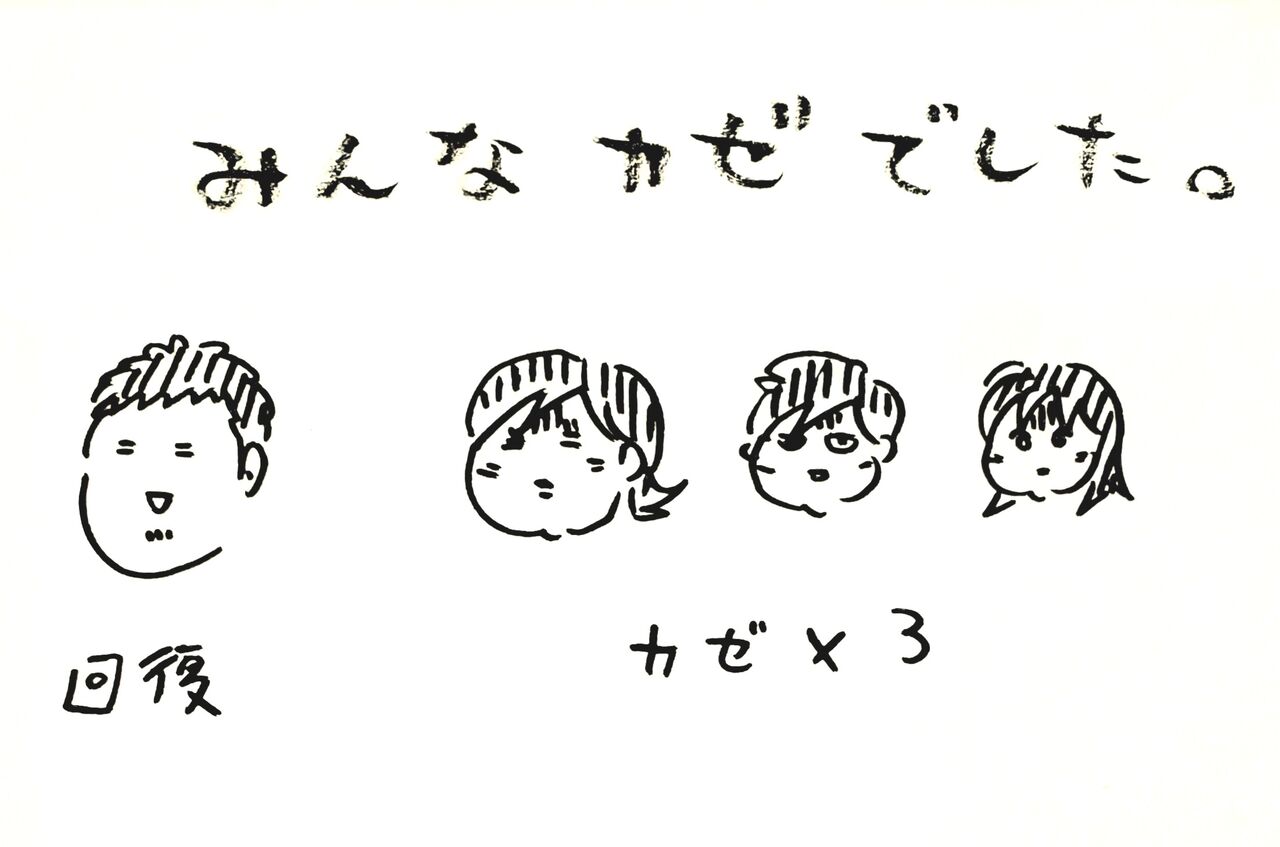 みんなカゼでした。
回復
カゼ×3